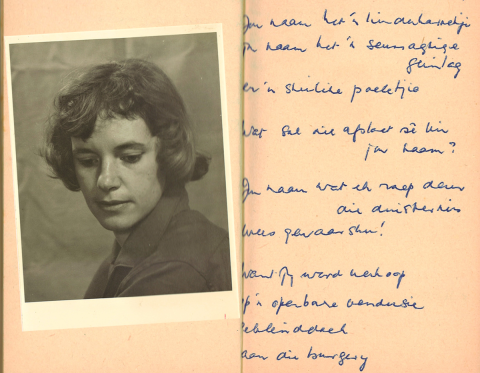 Jou naam het 'n
Jou naam het 'n seunsagtige
glimlag
en 'n
Wat sal die afslaer sê
jou naam?
Jou naam wat ek roep deur
die duisternis
wees gewaarsku!
want Jy word verkoop
op 'n openbare vendusie
geblinddoek
aan die burgery